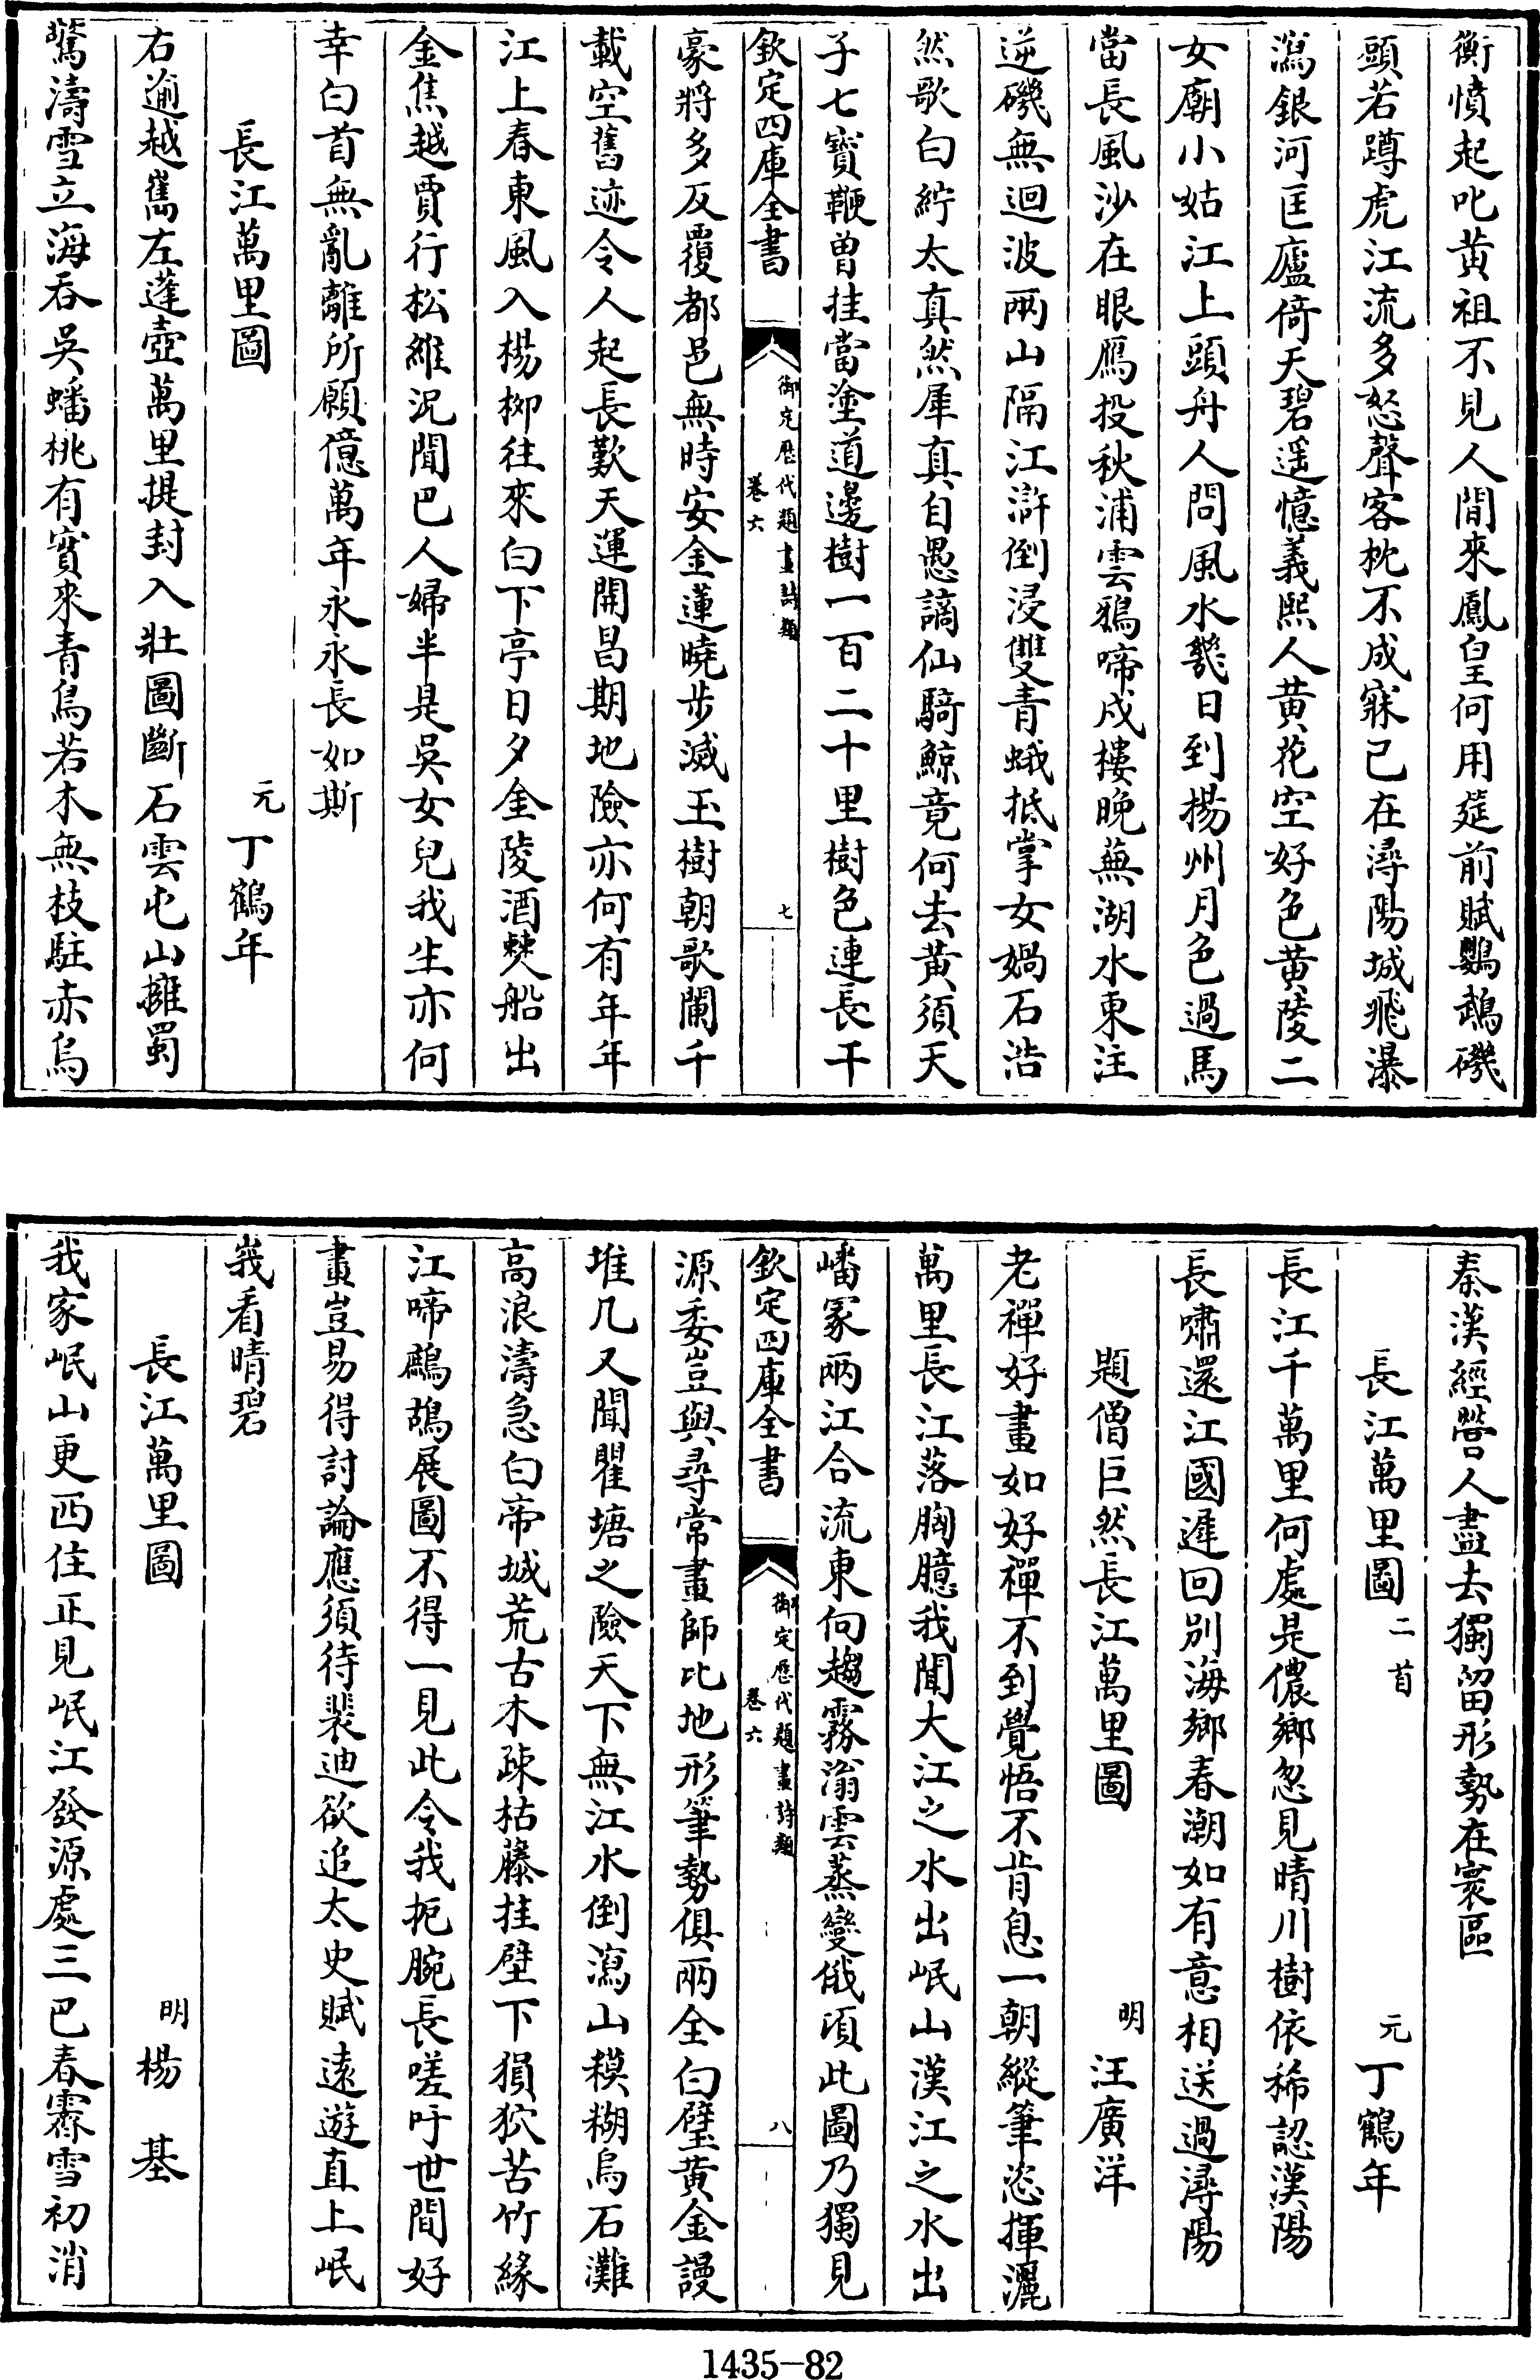 衡憤起叱黃祖不見人間來鳳皇何用筵前賦鸚鵡磯
頭若蹲虎江流多怒聲客枕不成寐已在潯陽城飛瀑
瀉銀河匡廬倚天碧遥憶義熙人黃花空好色黃陵二
女廟小姑江上頭舟人問風水幾日到揚州月色過馬
當長風沙在眼鴈投秋浦雲鴉啼戍樓晚蕪湖水東注
逆磯無迴波兩山隔江滸倒浸雙青蛾抵掌女媧石浩
然歌白紵太真然犀真自愚謫仙騎鯨竟何去黃須天
子七寶鞭曽挂當塗道邊樹一百二十里樹色連長干
欽定四庫全書
御定歷代題畫詩類
卷六
七
豪將多反覆都邑無時安金蓮曉步滅玉樹朝歌闌千
載空舊迹令人起長歎天運開昌期地險亦何有年年
江上春東風入楊柳往來白下亭日夕金陵酒僰船出
金焦越賈行松維況聞巴人婦半是吳女兒我生亦何
幸白首無亂離所願億萬年永永長如斯
長江萬里圖
元丁鶴年
右逾越嶲左蓬壺萬里提封入壯圖斷石雲屯山擁蜀
驚濤雪立海吞吳蟠桃有實來青鳥若木無枝駐赤烏
秦漢經營人盡去獨留形勢在寰區
長江萬里圖二首
元丁鶴年
長江千萬里何處是儂鄉忽見晴川樹依稀認漢陽
長嘯還江國遲回別海鄉春潮如有意相送過潯陽
題僧巨然長江萬里圖
明汪廣洋
老禪好畫如好禪不到覺悟不肯息一朝縱筆恣揮灑
萬里長江落胸臆我聞大江之水出岷山漢江之水出
嶓冢兩江合流東向趨霧滃雲蒸變俄頃此圖乃獨見
欽定四庫全書
御定歷代題畫詩類
卷六
八
源委豈與尋常畫師比地形筆勢俱兩全白璧黃金謾
堆几又聞瞿塘之險天下無江水倒瀉山模糊烏石灘
高浪濤急白帝城荒古木疎枯藤挂壁下猿狖苦竹緣
江啼鷓鴣展圖不得一見此令我扼腕長嗟吁世間好
畫豈易得討論應須待裴迪欲追太史賦遠遊直上岷
峩看晴碧
長江萬里圖
明楊基
我家岷山更西住正見岷江發源處三巴春霽雪初消
1435-82